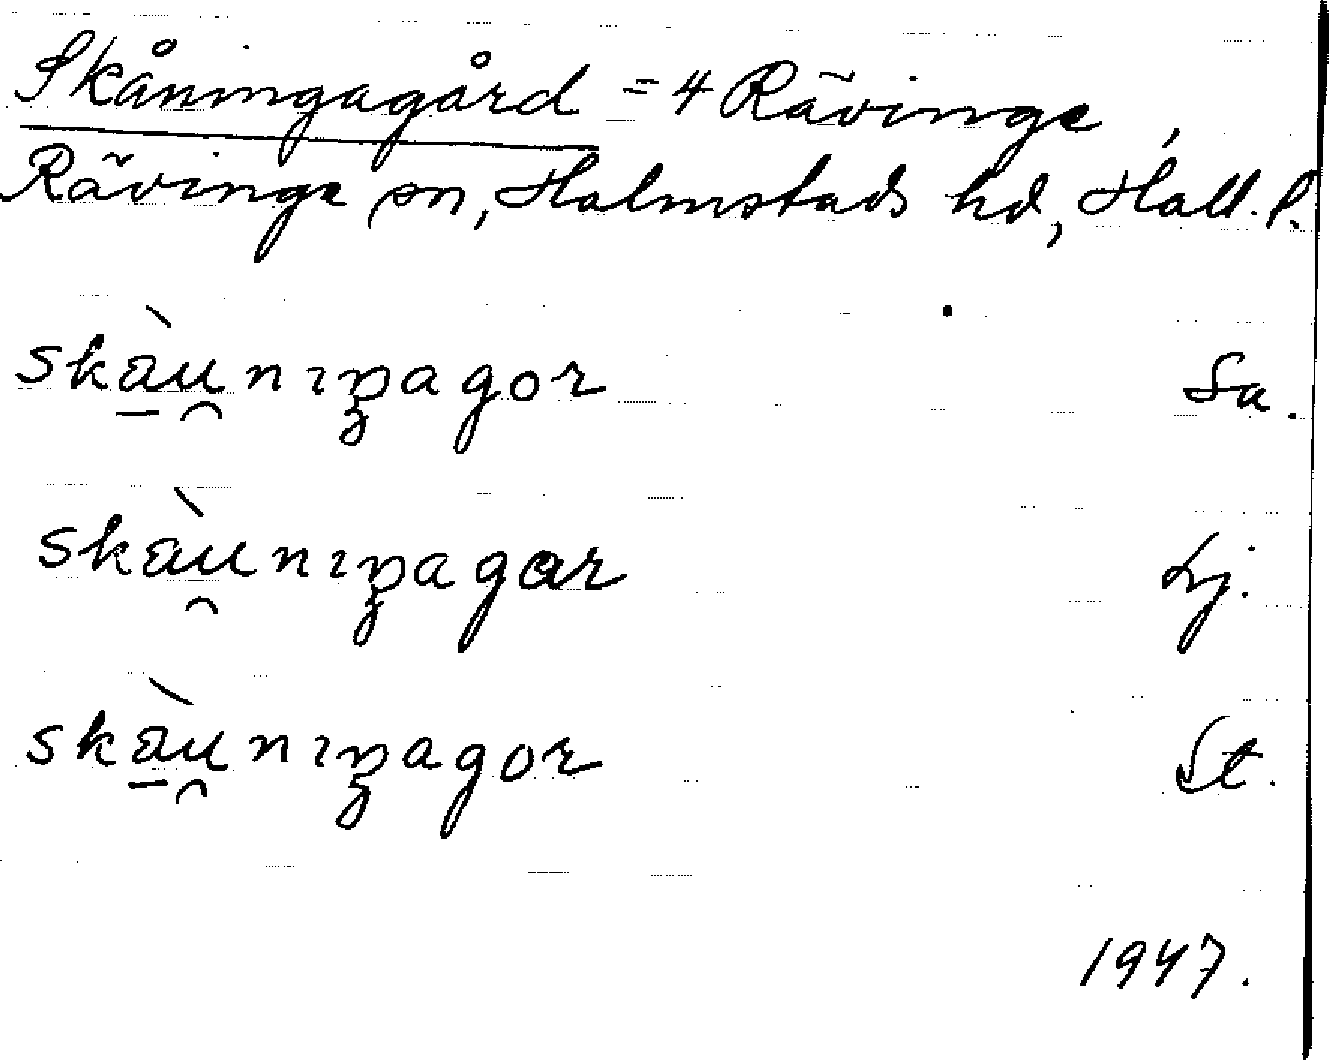 Skåningagård = 4 Rävinge,
Rävinge sn, Halmstads hd, Hall. l.
skàu̯nıŋagor Sn.
skàu̯nıŋagar Lj.
skàu̯nıŋagor St.
1947.